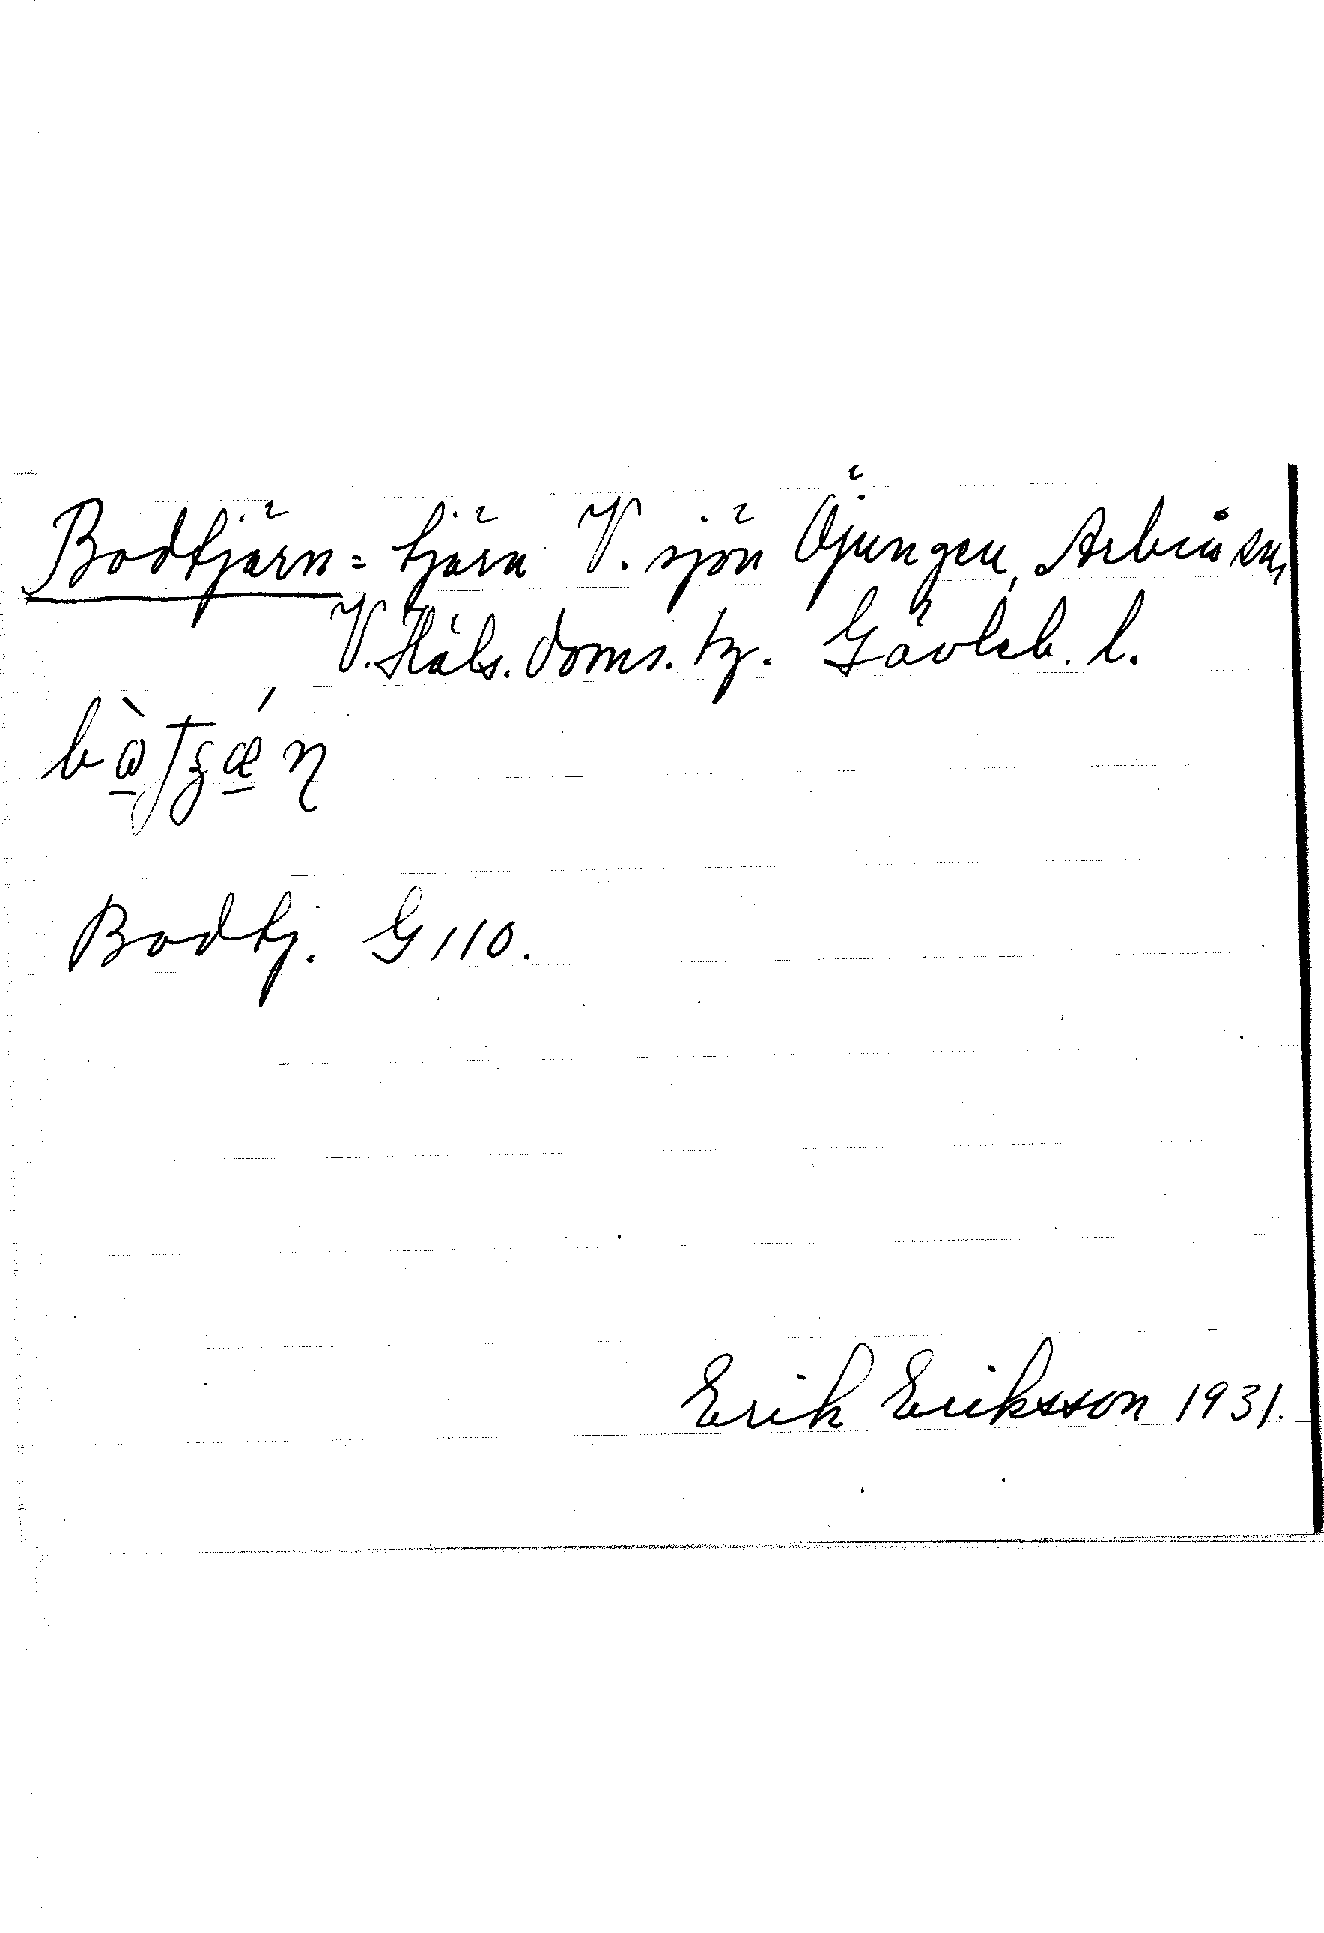 Bodtjärn = tjärn V. sjön Öjungen, Arbrå sn,
V. Häls. doms. tg. Gävleb. l.
Bodtj. G 110.
Erik Eriksson 1931.